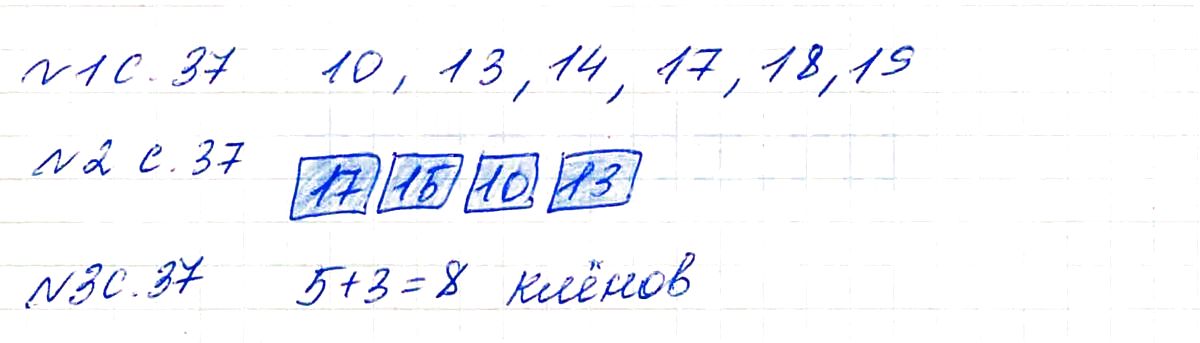 №1 с. 37 10, 13, 14, 17, 18, 19
№2 с. 37 17 15 10 13
№3 с. 37 5+3=8 клёнов